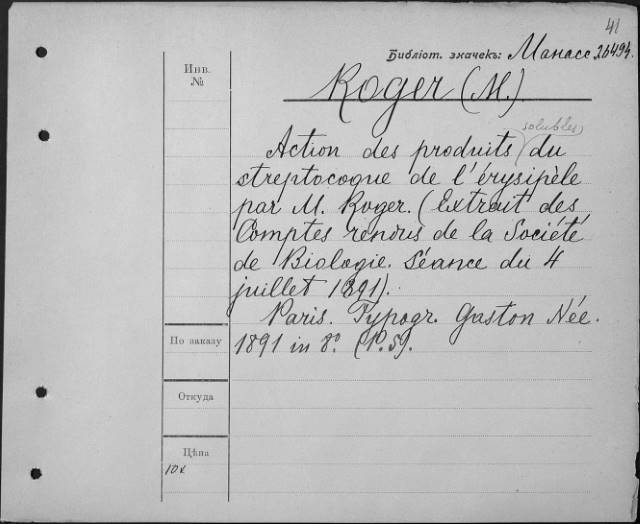 41
Библіот. значекъ: Манасс 26494.
Инв.
№
Roger (M.)
solubles
Action des produits du
streptocoque de l'érysipèle
par M. Roger. (Extrait des
Comptes rendus de la Société
de Biologie. Séance du 4
juillet 1891).
Paris. Typogr. Gaston Née.
По заказу
1891 in 8º. (P. 5).
Откуда
Цѣна
10к